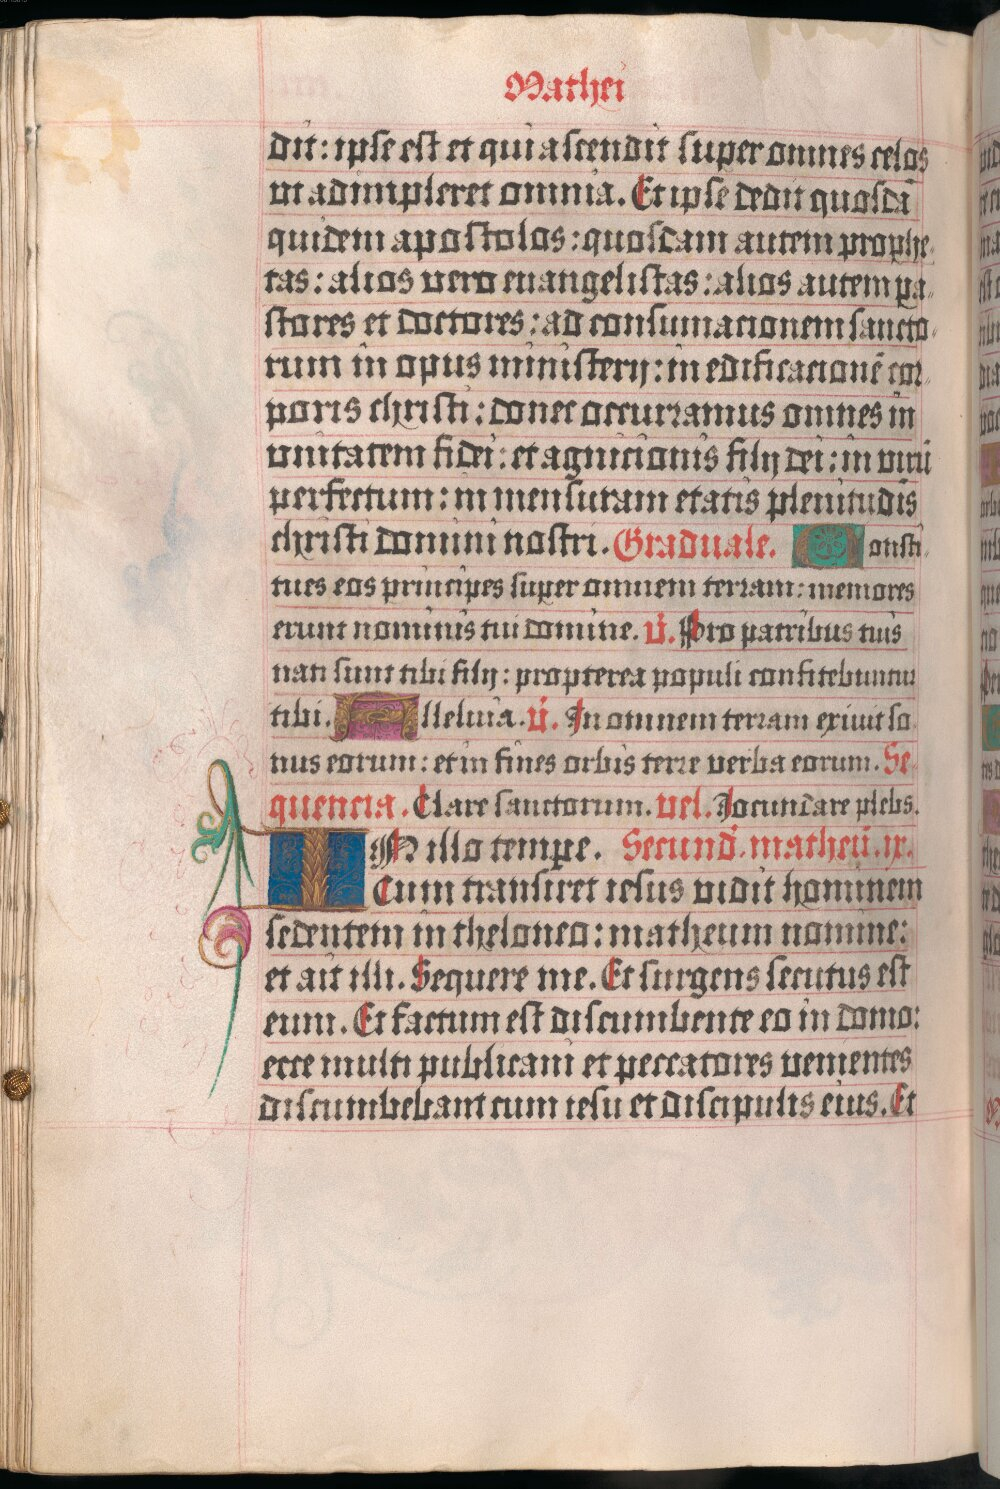 Mathei
dit: ipse est et qui ascendit super omnes celos
vt adimpleret omnia. Et ipse dedit quosdā
quidem apostolos: quosdam autem prophe-
tas: alios vero euangelistas: alios autem pa-
stores et doctores: ad consumacionem sancto-
rum in opus ministerij: in edificacionē cor-
poris christi: donec occurramus omnes in
vnitatem fidei: et agnicionis filij dei: in virū
perfectum: in mensuram etatis plenitudīs
christi domini nostri. Graduale. Consti-
tues eos principes super omnem terram: memores
erunt nominis tui domine. v̄. Pro patribus tuis
nati sunt tibi filij: propterea populi confitebuntur
tibi. Alleluia. v̄. In omnem terram exiuit so-
nus eorum: et in fines orbis terre verba eorum. Se-
quencia. Clare sanctorum. vel. Iocundare plebs.
IN illo tempe. Secund̄. matheū. ix.
Cum transiret iesus vidit hominem
sedentem in theloneo: matheum nomine:
et ait illi. Sequere me. Et surgens secutus est
eum. Et factum est discumbente eo in domo:
ecce multi publicani et peccatores venientes
discumbebant cum iesu et discipulis eius. Et